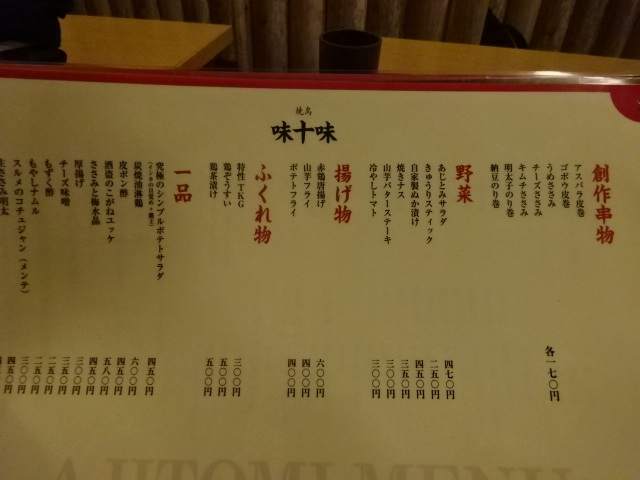 焼鳥
味十味
創作串物
アスパラ皮巻
ゴボウ皮巻
うめささみ
チーズささみ
キムチささみ
明太子のり巻
納豆のり巻
各一七〇円
野菜
あじとみサラダ 四七〇円
きゅうりスティック 二五〇円
自家製ぬか漬け 四五〇円
焼きナス 三五〇円
山芋バターステーキ 三〇〇円
冷やしトマト 三〇〇円
揚げ物
赤鶏唐揚げ 六〇〇円
山芋フライ 四〇〇円
ポテトフライ 四〇〇円
ふくれ物
特性TKG 三〇〇円
鶏ぞうすい 五〇〇円
鶏茶漬け 五〇〇円
一品
究極のシンプルポテトサラダ 四五〇円
炭焼油淋鶏 六〇〇円
皮ポン酢 四五〇円
酒盗のこがねユッケ 五八〇円
ささみと梅水晶 四五〇円
厚揚げ 三〇〇円
チーズ味噌 三五〇円
もずく酢 二五〇円
もやしナムル 二五〇円
スルメのコチュジャン（メンテ） 三〇〇円
生ささみ明太 四五〇円
AJITOMI MENU